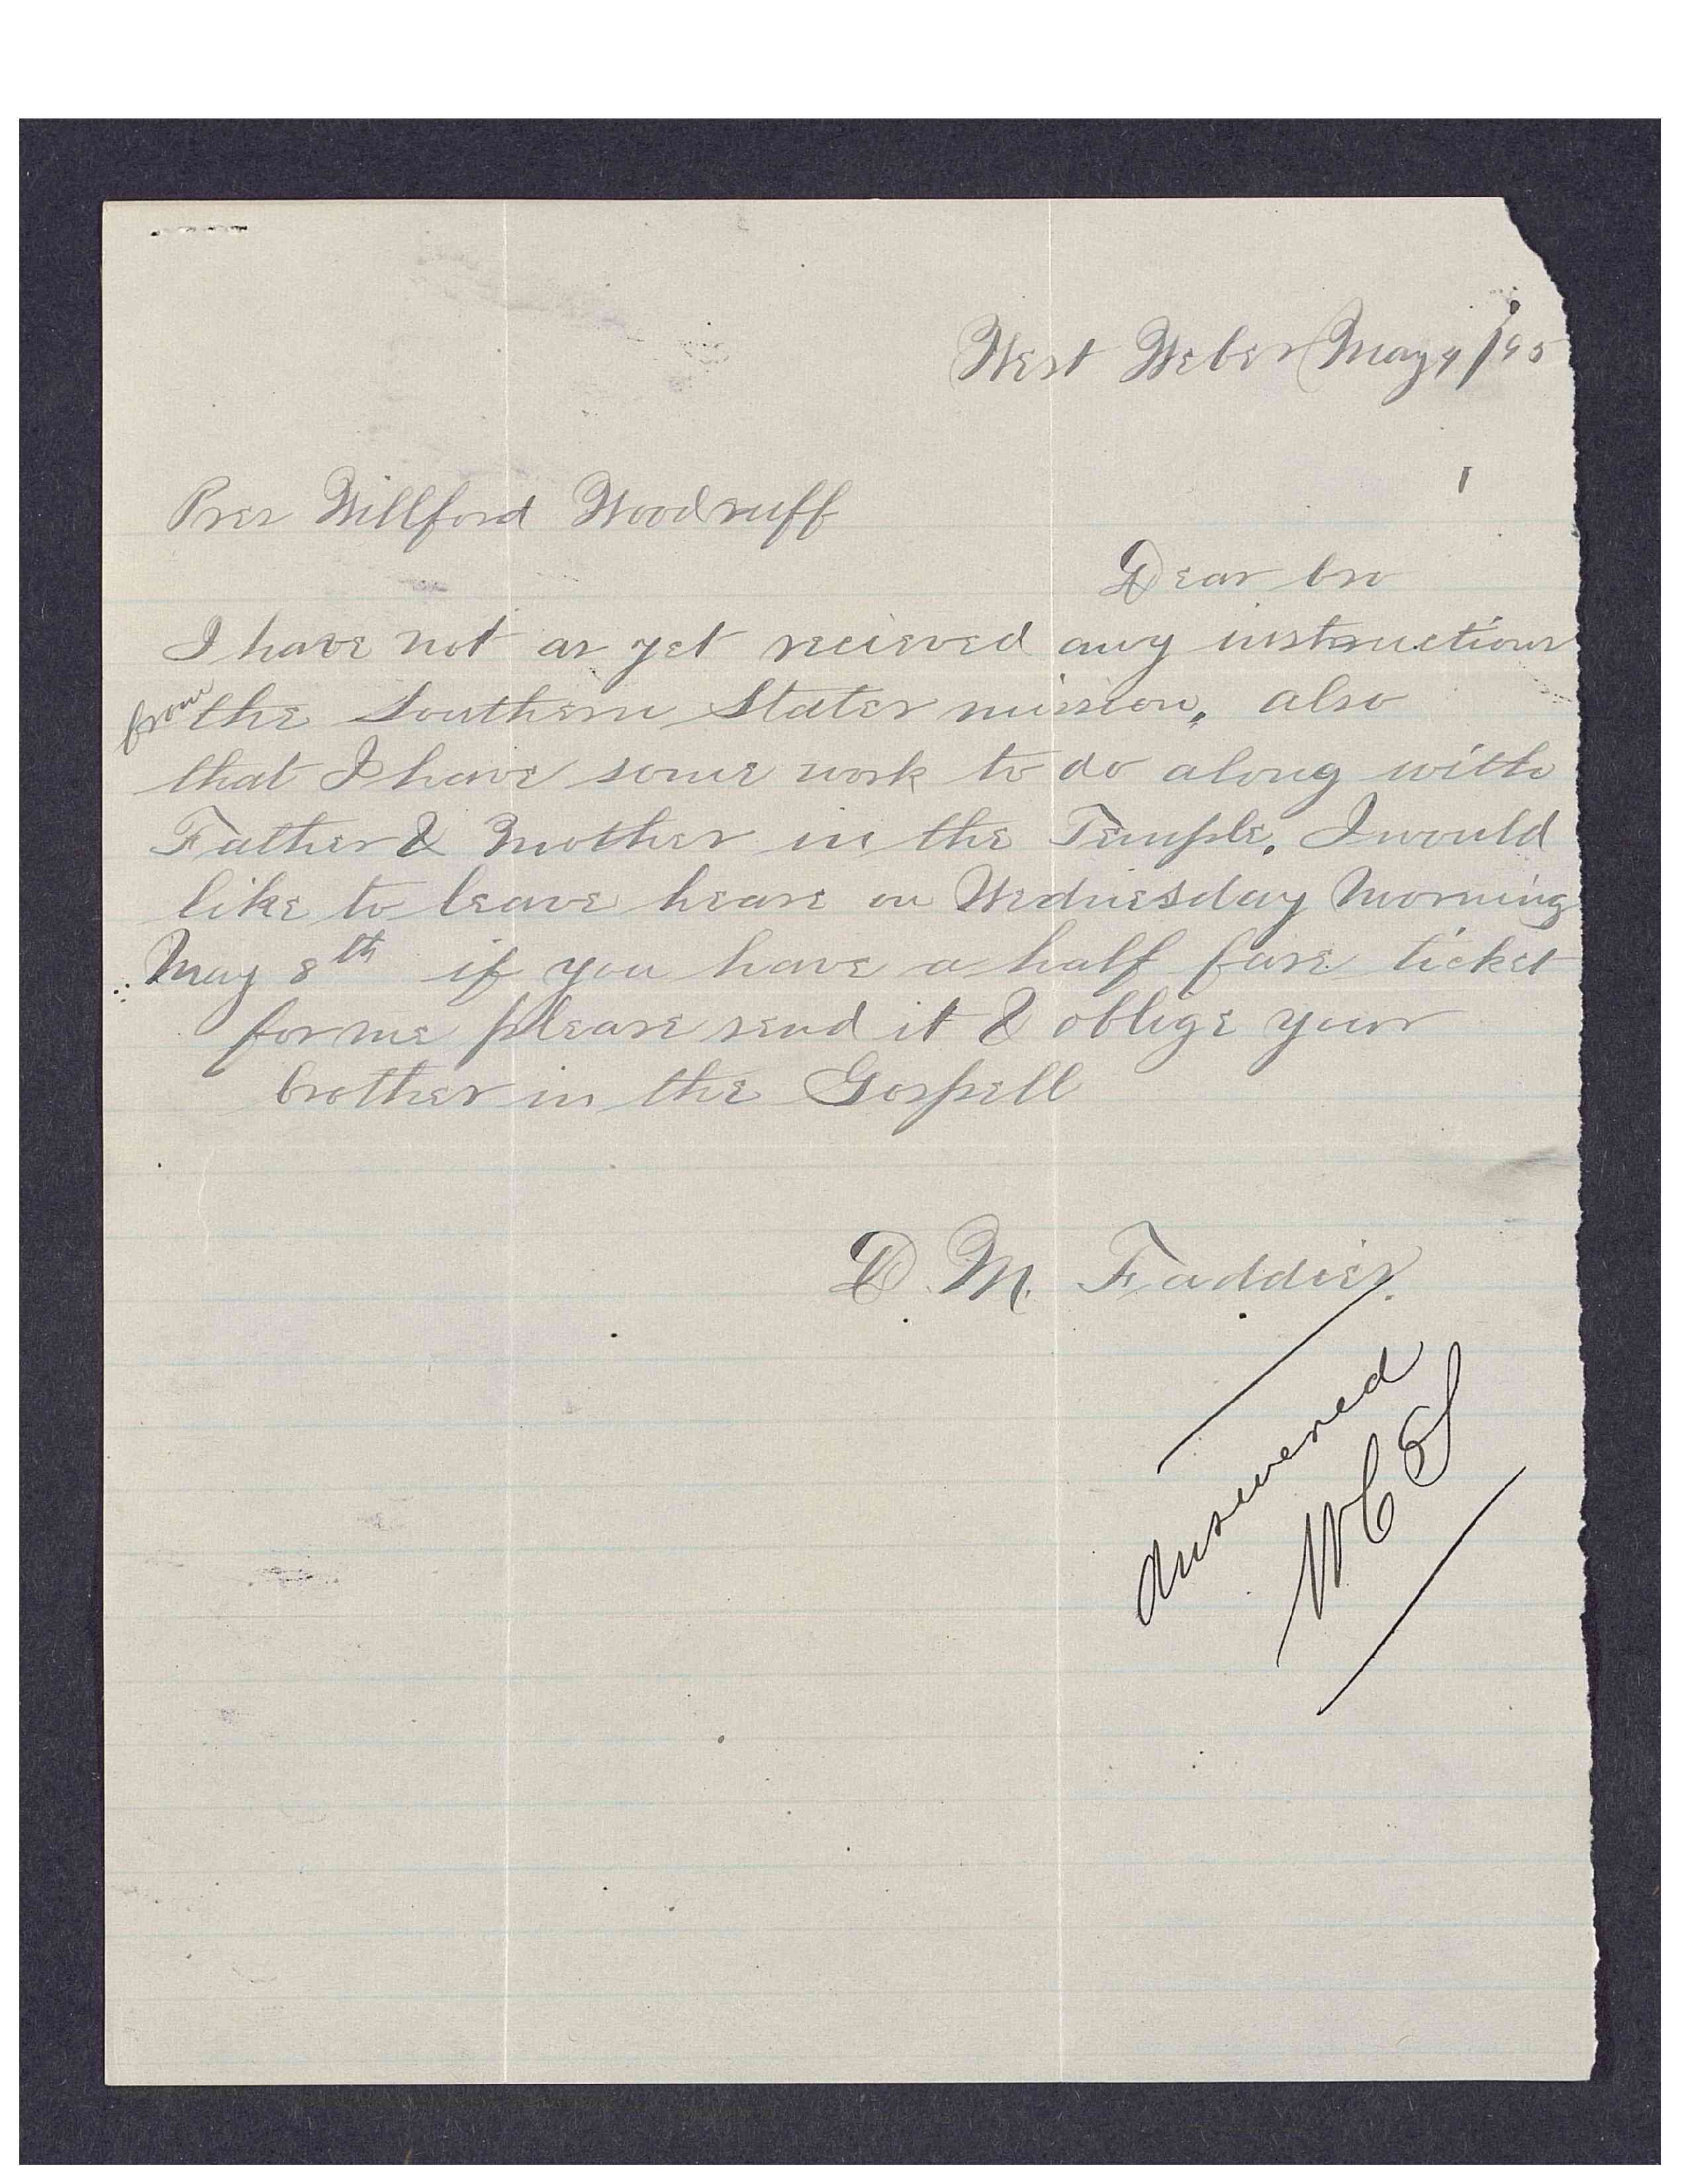 West Weber May 4/95
Pres Willford Woodruff
Dear bro
I have not as yet recieved any instructions
from the Southern States mission, also
that I have some work to do along with
Father & Mother in the Temple. I would
like to leave heare on Wednesday Morning
May 8th if you have a half fare ticket
for me please send it & oblige your
brother in the Gospell
D. M. Faddies.
Answered
WCS